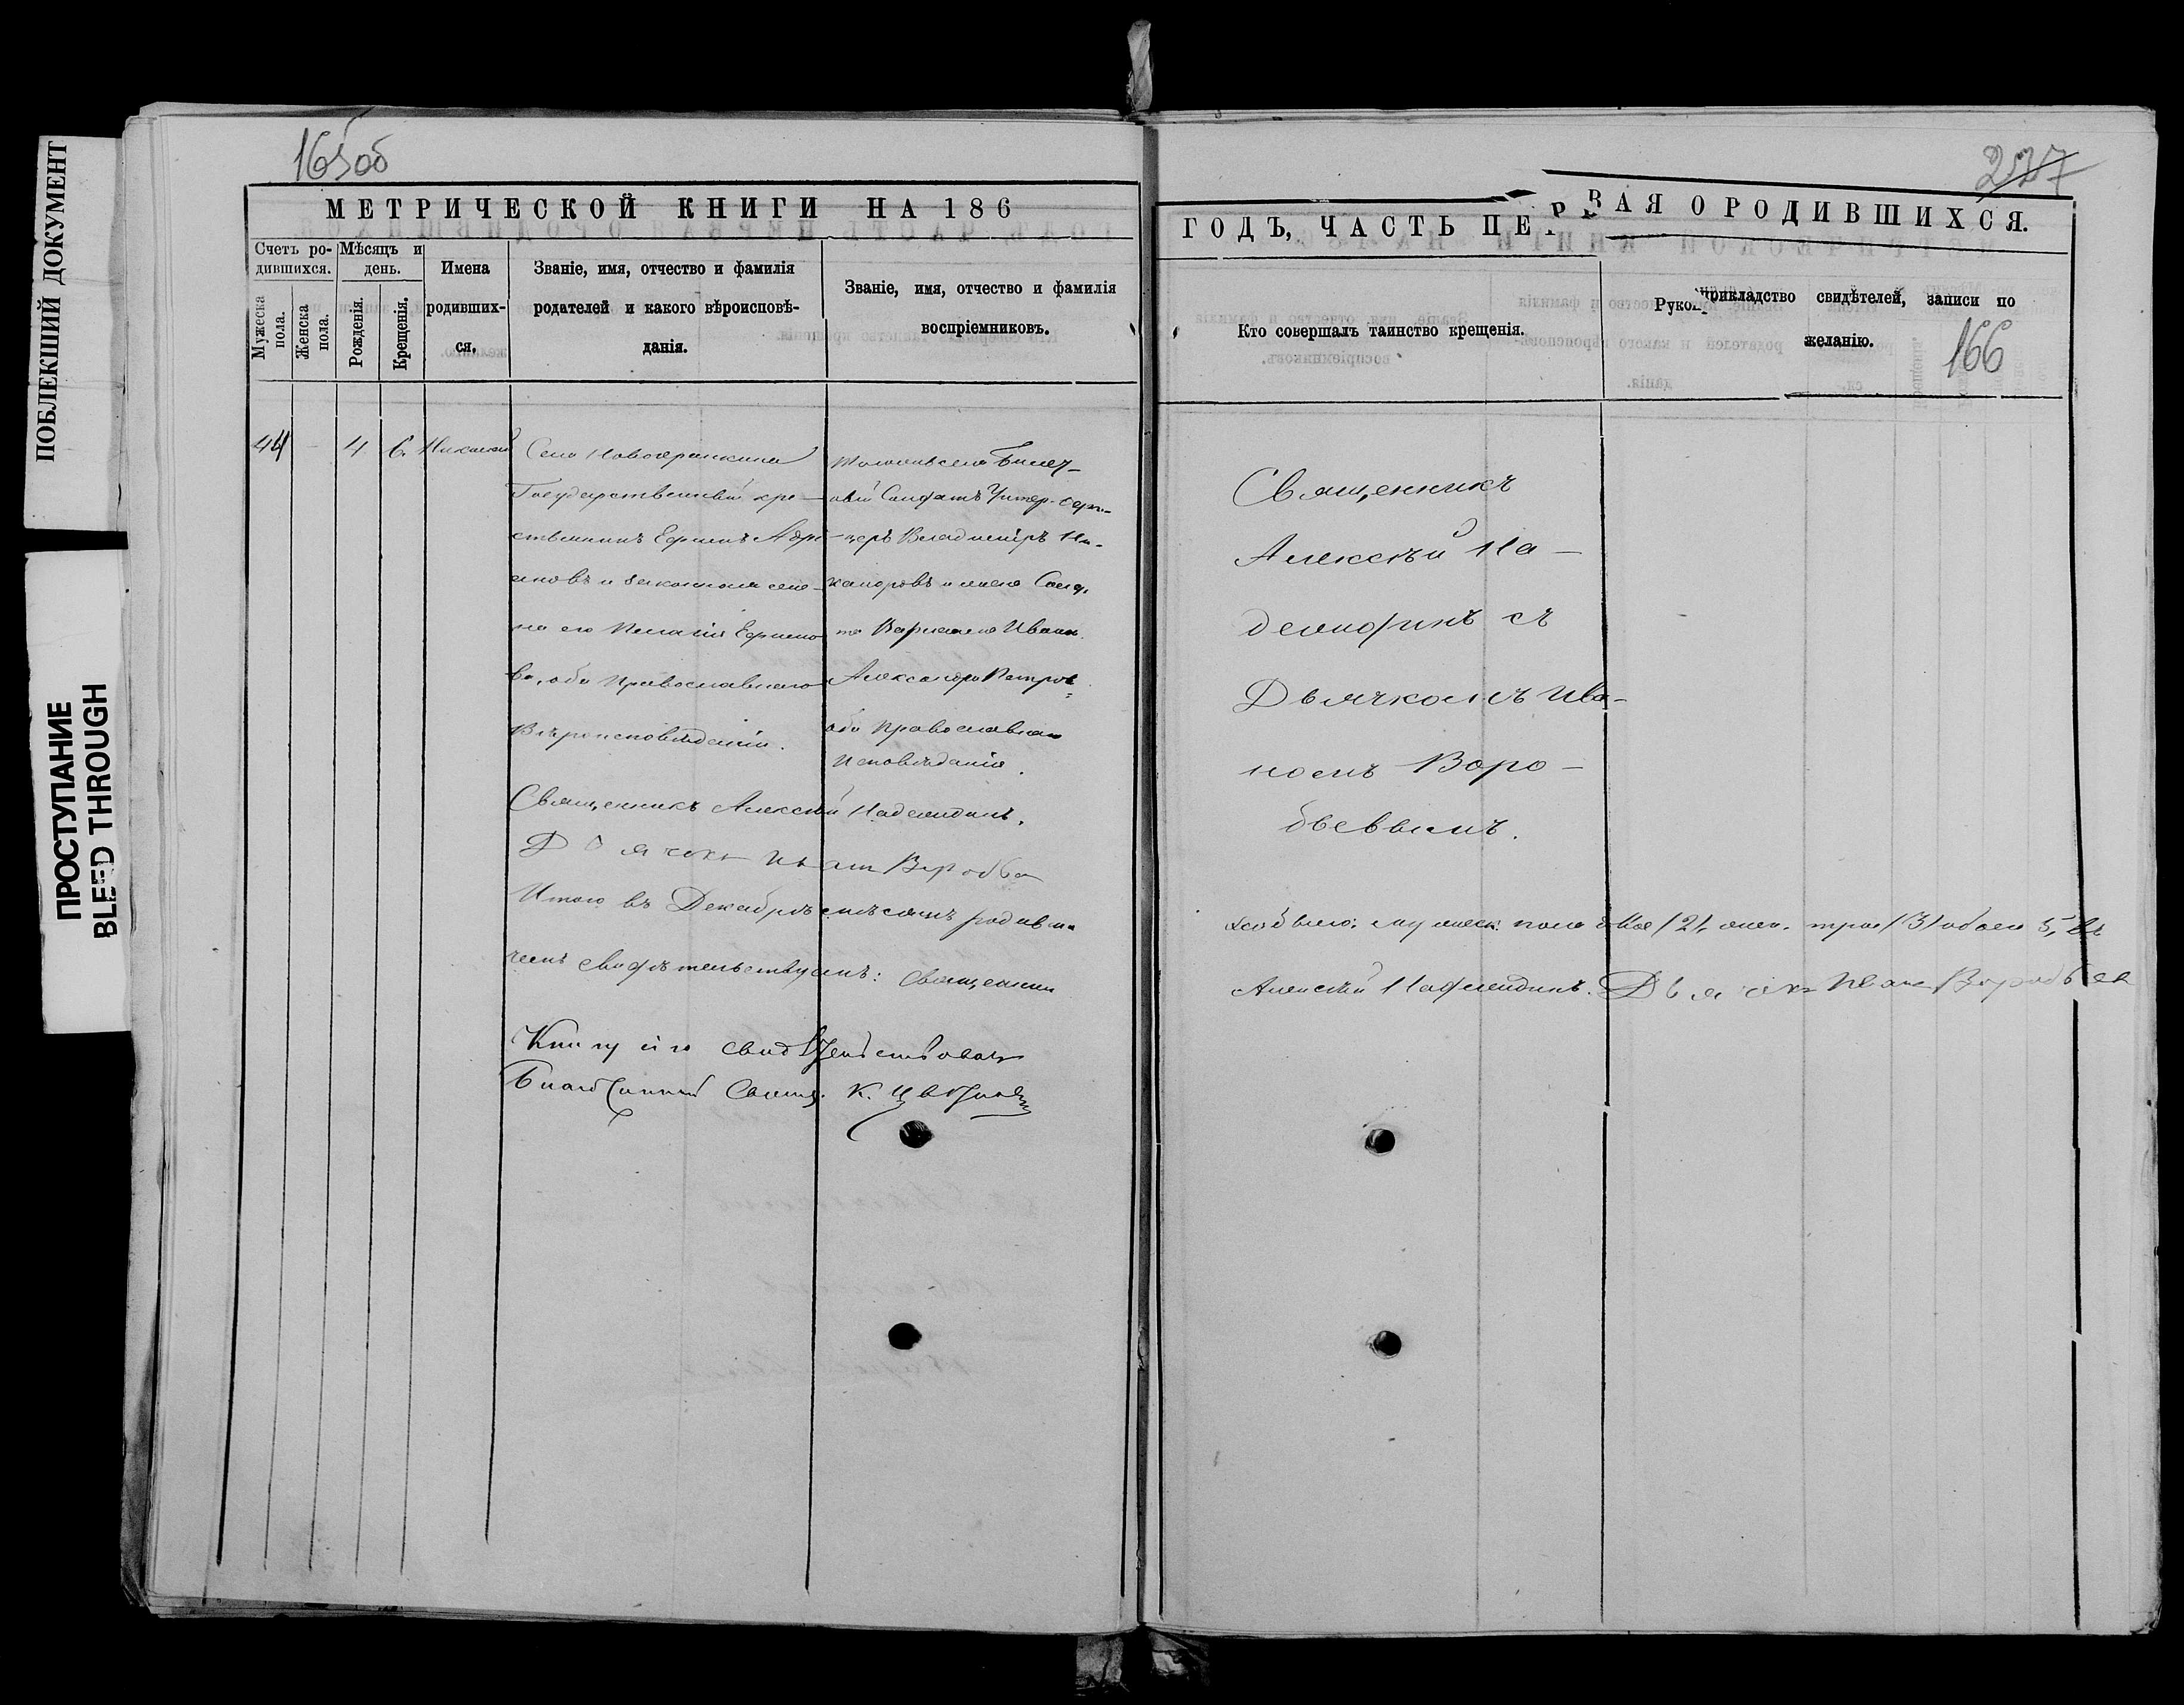 ПОБЛЕКШИЙ ДОКУМЕНТ
ПРОСТУПАНИЕ
BLEED THROUGH
165об
МЕТРИЧЕСКОЙ КНИГИ НА 186
Счетъ ро-
дившихся.
Мужеска
пола.
Женска
пола.
Мѣсяцъ и
день.
Рожденія.
Крещенія.
Имена
родивших-
ся.
Званіе, имя, отчество и фамилія
родателей и какого вѣроисповѣ-
данія.
Званіе, имя, отчество и фамилія
воспріемниковъ.
44 - 4 6. Николай
Села
Государственный кре-
стьянинъ Ефимъ Адрі-
ановъ и законная же-
на его Пелагія Ефимо
ва, оба Православнаго
Вѣроисповѣданія.
овый Солдатъ Унтер-офи-
-церъ Владиміръ Ни-
каноровъ и жена Солд.
Александра Петров
оба Православнаго
Исповѣданія.
Священникъ Алексѣй Наделидинъ.
Дьячокъ Иванъ Воробьев
Итого въ Декабрѣ мѣсяцѣ родивш
чемъ свидѣтельствуемъ: Священник
Книгу сію свидѣтельствовалъ
Благочинный Свящ. К.
227
ГОДЪ, ЧАСТЬ ПЕРВАЯ О РОДИВШИХСЯ.
Кто совершалъ таинство крещенія.
Рукоприкладство свидѣтелей, записи по
желанію.
166
Священникъ
Алексѣй На-
делидинъ съ
Дьячкомъ Ива-
номъ Воро-
бьевымъ.
было: мужеск. пола двое (2), жен. трое (3) обоего 5, въ
Алексѣй Наделидинъ. Дьячокъ Иванъ Воробьев